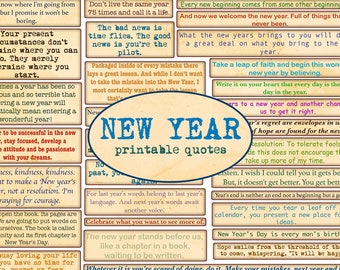 now where I'm going from
but I promise it won't be
boring.
Your present
circumstances don't
determine where you can
go. They merely
determine where you
start.
times a year has been so
and so terrible that
entering a new year will
automatically mean entering a
wonderful new
to be successful in the new
stay focused, develop a
attitude and be passionate
with your dreams.
kindness, kindness, kindness.
want to make a New year's
not a resolution. I'm
praying for courage.
open the book. Its pages are
We are going to put words on
ourselves. The book is called
Opportunity and its first chapter is
New Year's Day.
busy loving your life
you have no time for
Don't live the same year
75 times and call it a life.
The bad news is
time flies. The good
news is you're the
pilot.
Packaged inside of every mistake there
lays a great lesson. And while I don't want
to take the mistake into the New Year, I
most certainly want to take the lesson
NEW YEAR
printable quotes
For last year's words belong to last year's
language. And next year's words await
another voice.
Celebrate what you want to see more of.
The new year stands before us,
like a chapter in a book,
waiting to be written.
Whatever it is you're scared of doing, do it. Make your mistakes, next year and
Every new beginning comes from some other beginning
And now we welcome the new year. Full of things
never been.
What the new years brings to you will
a great deal on what you bring to the
year.
Take a leap of faith and begin this
new year by believing.
Write it on your heart that every day is the
day in the year.
to a new year and another
us to get it right.
regret or new
of hope are found for the new
Resolution: To tolerate fools
this doesn't encourage
take up more of my time.
Listen. I wish I could tell you it gets
But, it doesn't get better. You get
is neither an end nor a beginning but a
Every time you tear a leaf off
calendar, you present a new place
ideas
New Year's Day is every man's birthday.
Hope smiles from the threshold of the
to come, whispering, "It will be